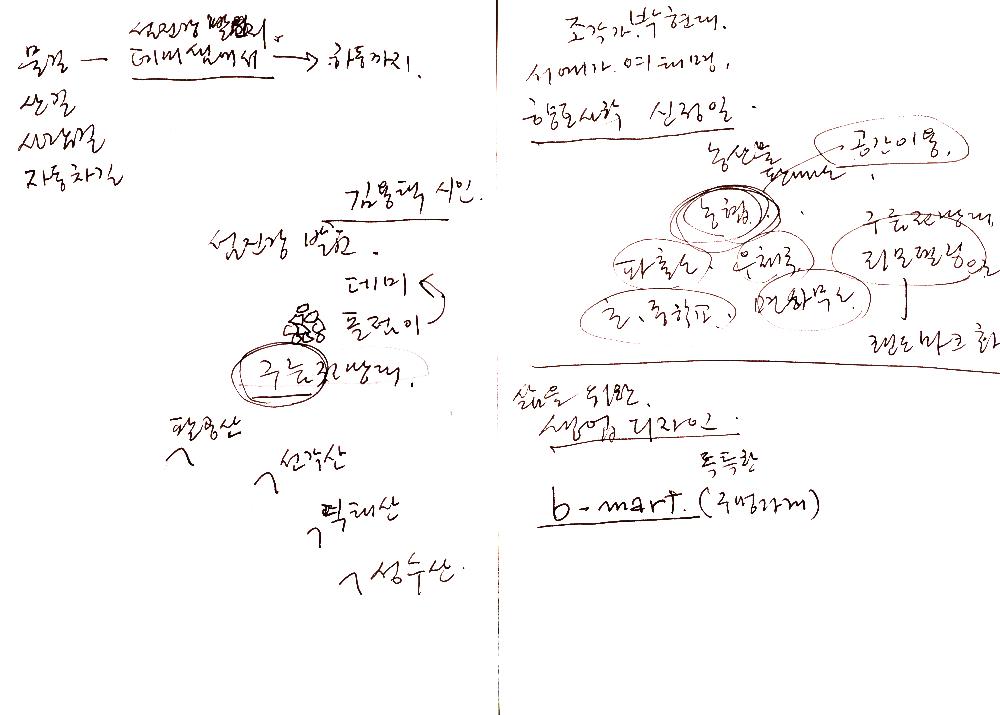 섬진강 발원지.
물길 — 데미샘에서 → 하동까지.
산길
사람길
자동차길
김용택 시인.
섬진강 발원.
데미
돌점이
구름전망대.
팔공산
선각산
덕태산
성수산.
조각가 박현태.
서예가 여태명.
향토사학 신정일.
농산물
판매소
공간이용.
농협.
구름전망대,
파출소. 우체국 리모델링으로
초, 중학교. 면화무소
랜드마크화
삶을 위한.
생업디자인.
독특한
b-mart. (주명가게)